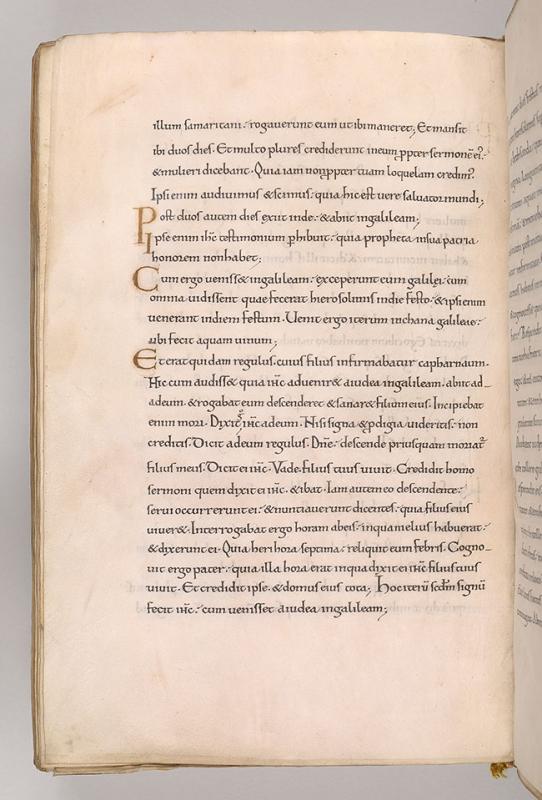 illum samaritani. rogaverunt eum ut ibi maneret; Et mansit
ibi duos dies. Et multo plures crediderunt in eum ꝓpter sermonē ei:
& mulieri dicebant. Quia iam non ꝓpter tuam loquelam credim:
Ipsi enim audivimus & scimus. quia hic est vere salvator mundi;
Post duos autem dies exiit inde. & abiit in galileam;
Ipse enim ihc testimonium ꝑhibuit. quia propheta in sua patria
honorem non habet;
Cum ergo veniss& in galileam. exceperunt eum galilei. cum
omnia vidissent quae fecerat hierosolimis in die festo. & ipsi enim
venerant in diem festum. Venit ergo iterum in chana galileae.
ubi fecit aquam vinum;
Et erat quidam regulus. cuius filius infirmabatur capharnaum.
Hic cum audiss& quia ihc advenir& a iudea in galileam. abiit ad
adeum. & rogabat eum ut descenderet & sanar& filium eius. Incipiebat
enim mori. Dixit g̊ ihc adeum. Nisi signa & ꝓdigia videritis. non
creditis. Dicit adeum regulus. Dn̄e. descende priusquam moriat
filius meus. Dicit ei ihc. Vade. filius tuus vivit. Credidit homo
sermoni quem dixit ei ihc. & ibat. Iam autem eo descendente.
servi occurrerunt ei. & nuntiaverunt dicentes. quia filius eius
viver&. Interrogabat ergo horam abeis. in qua melius habuerat.
& dixerunt ei. Quia heri hora septima. reliquit eum febris. Cogno-
vit ergo pater. quia illa hora erat in qua dixit ei ihc filius tuus
vivit. Et credidit ipse. & domus eius tota; Hoc iterū scdm signū
fecit ihc. cum venisset a iudea in galileam;